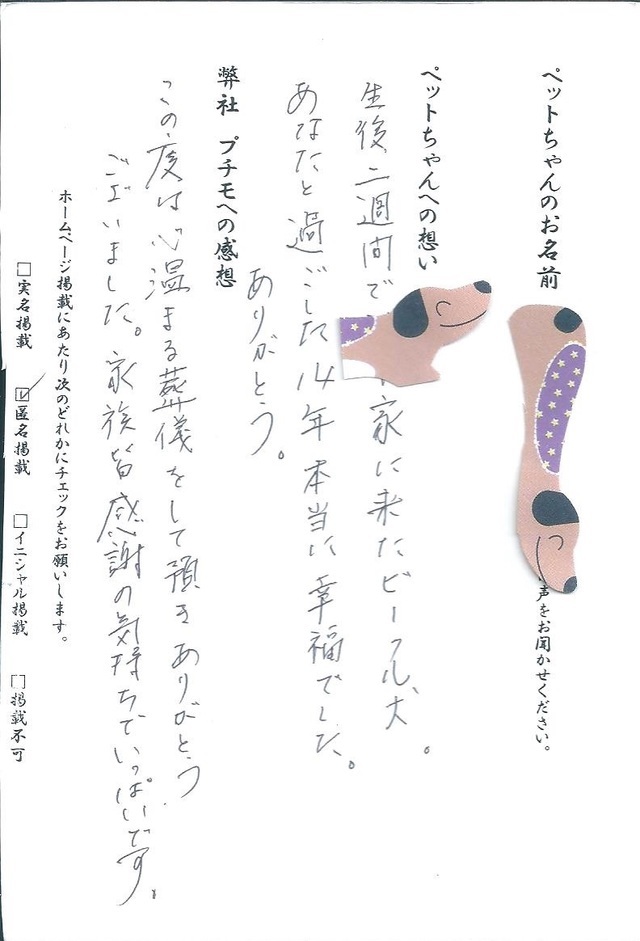 ペットちゃんのお名前
声をお聞かせください。
ペットちゃんへの想い
生後、二週間で
家に来たビーグル犬。
あなたと過ごした14年本当に幸福でした。
ありがとう。
弊社 プチモへの感想
この度は心温まる葬儀をして頂きありがとう
ございました。家族皆感謝の気持ちでいっぱいです。
ホームページ掲載にあたり次のどれかにチェックをお願いします。
□実名掲載 ☑匿名掲載 □イニシャル掲載 □掲載不可